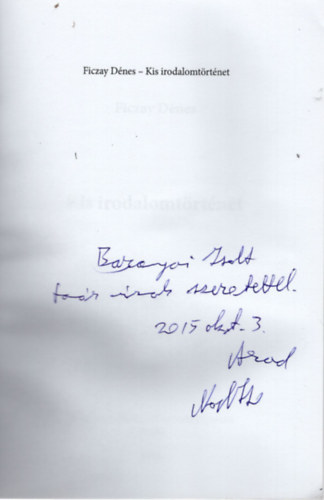 Ficzay Dénes – Kis irodalomtörténet
Ficzay Dénes
Kis irodalomtörténet
Baranyai Zsolt
szeretettel.
2015 okt. 3.
Arad